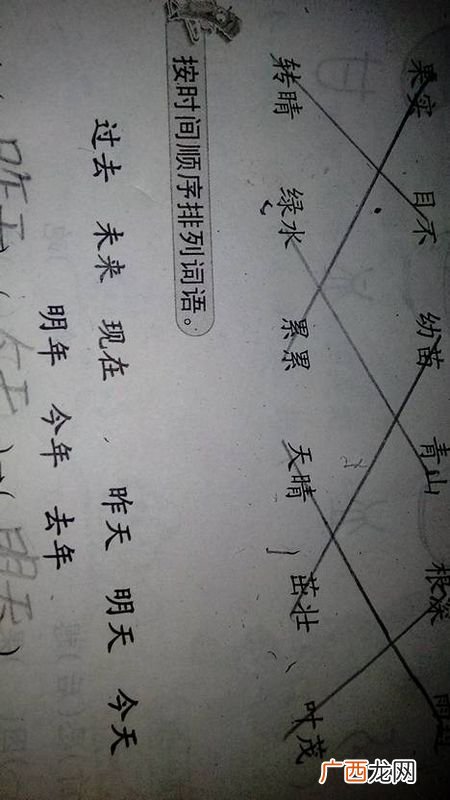 果实 目不 幼苗 青山 根深 雨过
转睛 绿水 累累 天晴 茁壮 叶茂
按时间顺序排列词语。
过去 未来 现在 昨天 明天 今天
明年 今年 去年
昨天)(今天)(明天)
广西龙网